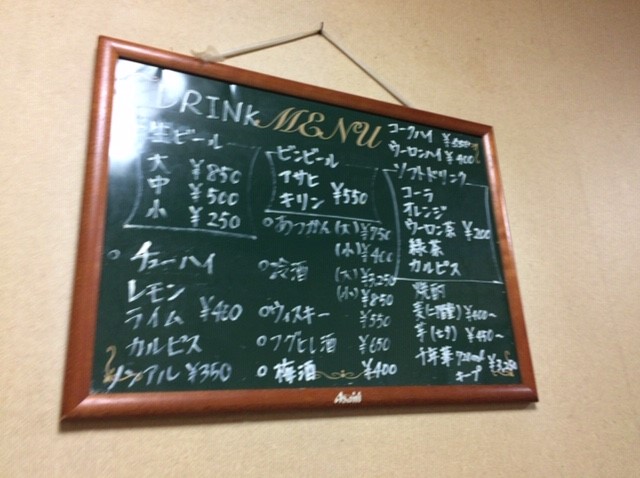 DRINK MENU
生ビール
大 ¥850
中 ¥500
小 ¥250
チューハイ
レモン
ライム ¥400
カルピス
ノンアル ¥350
ビンビール
アサヒ
キリン ¥550
あつかん (大) ¥750
(小) ¥400
酒 (大) ¥3,250
(小) ¥850
ウィスキー ¥550
フグヒレ酒 ¥650
梅酒 ¥400
コークハイ
ウーロンハイ ¥400
ソフトドリンク
コーラ
オレンジ
ウーロン茶 ¥200
緑茶
カルピス
焼酎
麦(二階堂) ¥400〜
芋 ¥450〜
720ml
キープ ¥3,250
Asahi